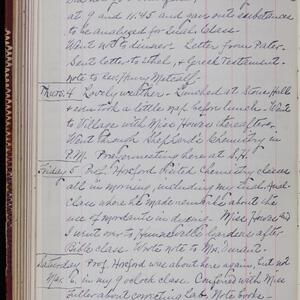 at 9 and 11.45 and gave out substances
to be analyzed for Qual. Class.
Went to dinner. Letter from Pater.
Sent letter to Ethel, & Greek Testament.
note to Rev. Henry Metcalf
Thurs. 4 Lovely weather. Lunched at Stone Hall
& even took a little nap before lunch. Went
to Village with Miss Howes thereafter.
Went through Shepherd's Chemistry in
P.M. Prof. meeting here at S.H.
Friday 5 Prof. Horsford visited Chemistry classes
all in morning, including my Qual. Anal.
class where he made remarks about the
use of mordants in dyeing. Miss Howes and
I went over to Hunnewell's Gardens after
Bible class. Wrote note to Mr. Durant.
Saturday Prof. Horsford was about here again, but not
Mar. 6. in my 9 o'clock class. Conferred with Miss
Fuller about correcting Lab. Note books.